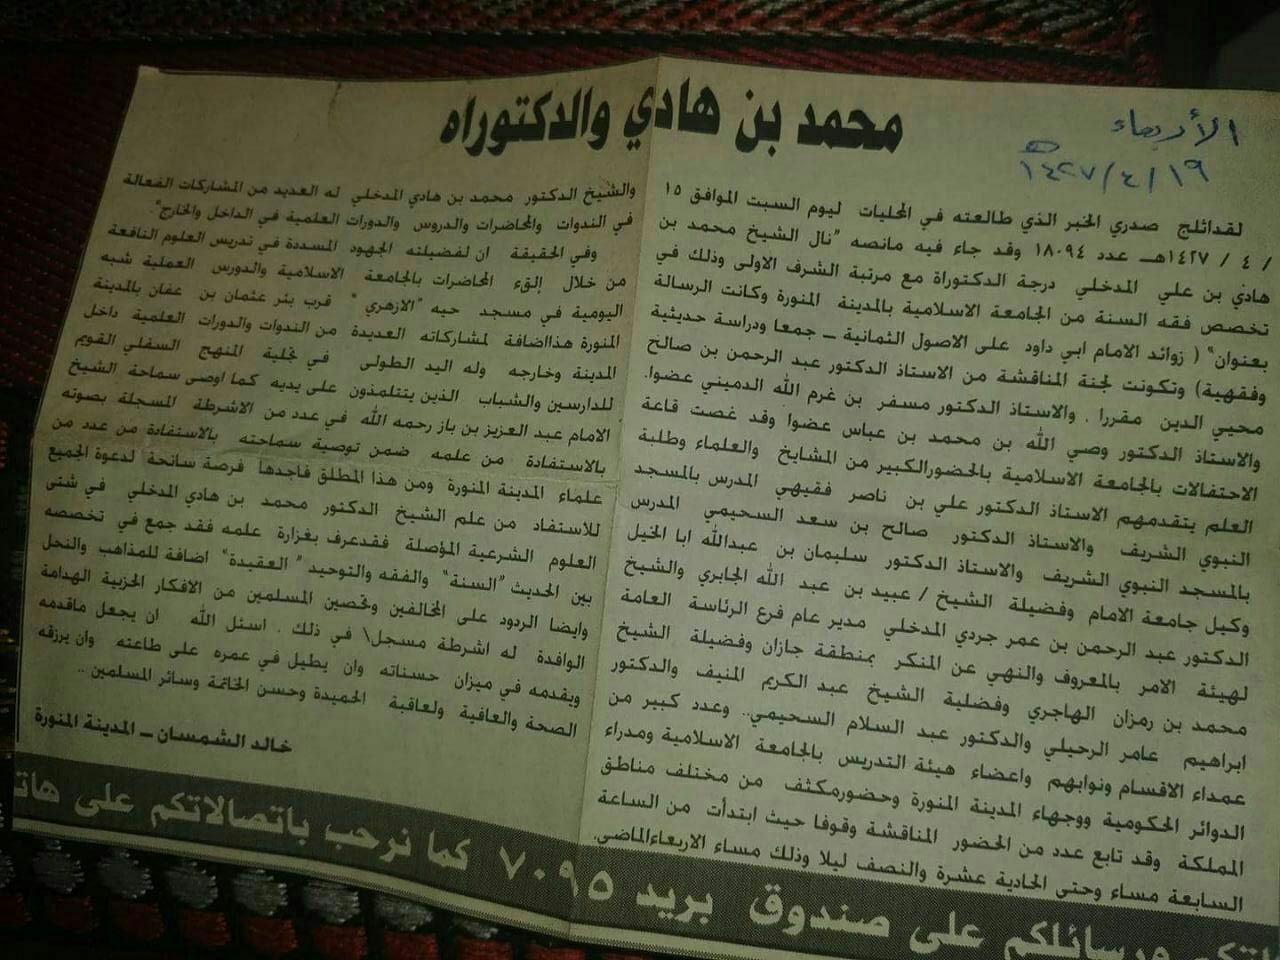 محمد بن هادي والدكتوراه
الأربعاء
١٤٢٧/٤/١٩هـ
لقداثلج صدري الخبر الذي طالعته في المحليات ليوم السبت الموافق ١٥
/ ٤ / ١٤٢٧هـ عدد ١٨٠٩٤ وقد جاء فيه مانصه "نال الشيخ محمد بن
هادي بن علي المدخلي درجة الدكتوراة مع مرتبة الشرف الاولى وذلك في
تخصص فقه السنة من الجامعة الاسلامية بالمدينة المنورة وكانت الرسالة
بعنوان" ( زوائد الامام ابي داود على الاصول الثمانية ــ جمعا ودراسة حديثية
وفقهية) وتكونت لجنة المناقشة من الاستاذ الدكتور عبد الرحمن بن صالح
محيي الدين مقررا . والاستاذ الدكتور مسفر بن غرم الله الدميني عضوا.
والاستاذ الدكتور وصي الله بن محمد بن عباس عضوا وقد غصت قاعة
الاحتفالات بالجامعة الاسلامية بالحضورالكبير من المشايخ والعلماء وطلبة
العلم يتقدمهم الاستاذ الدكتور علي بن ناصر فقيهي المدرس بالمسجد
النبوي الشريف والاستاذ الدكتور صالح بن سعد السحيمي المدرس
بالمسجد النبوي الشريف والاستاذ الدكتور سليمان بن عبدالله ابا الخيل
وكيل جامعة الامام وفضيلة الشيخ / عبيد بن عبد الله الجابري والشيخ
الدكتور عبد الرحمن بن عمر جردي المدخلي مدير عام فرع الرئاسة العامة
لهيئة الامر بالمعروف والنهي عن المنكر بمنطقة جازان وفضيلة الشيخ
محمد بن رمزان الهاجري وفضلية الشيخ عبد الكريم المنيف والدكتور
ابراهيم عامر الرحيلي والدكتور عبد السلام السحيمي.. وعدد كبير من
عمداء الاقسام ونوابهم واعضاء هيئة التدريس بالجامعة الاسلامية ومدراء
الدوائر الحكومية ووجهاء المدينة المنورة وحضورمكثف من مختلف مناطق
المملكة وقد تابع عدد من الحضور المناقشة وقوفا حيث ابتدأت من الساعة
السابعة مساء وحتى الحادية عشرة والنصف ليلا وذلك مساء الاربعاءالماضي.
والشيخ الدكتور محمد بن هادي المدخلي له العديد من المشاركات الفعالة
في الندوات والمحاضرات والدروس والدورات العلمية في الداخل والخارج".
وفي الحقيقة ان لفضيلته الجهود المسددة في تدريس العلوم النافعة
من خلال إلقء المحاضرات بالجامعة الاسلامية والدورس العملية شبه
اليومية في مسجد حيه "الازهري" قرب بئر عثمان بن عفان بالمدينة
المنورة هذااضافة لمشاركاته العديدة من الندوات والدورات العلمية داخل
المدينة وخارجه وله اليد الطولى في تجلية المنهج السفلي القويم
للدارسين والشباب الذين يتتلمذون على يديه كما اوصى سماحة الشيخ
الامام عبد العزيز بن باز رحمه الله في عدد من الاشرطة المسجلة بصوته
بالاستفادة من علمه ضمن توصية سماحته بالاستفادة من عدد من
علماء المدينة المنورة ومن هذا المطلق فاجدها فرصة سانحة لدعوة الجميع
للاستفاد من علم الشيخ الدكتور محمد بن هادي المدخلي في شتى
العلوم الشرعية المؤصلة فقدعرف بغزارة علمه فقد جمع في تخصصه
بين الحديث "السنة" والفقه والتوحيد "العقيدة" اضافة للمذاهب والنحل
وايضا الردود على المخالفين وتحصين المسلمين من الافكار الحزبية الهدامة
الوافدة له اشرطة مسجل\ في ذلك . اسئل الله ان يجعل ماقدمه
ويقدمه في ميزان حسناته وان يطيل في عمره على طاعته وان يرزقه
الصحة والعافية ولعاقبة الحميدة وحسن الخاتمة وسائر المسلمين ..
خالد الشمسان ــ المدينة المنورة
ورسائلكم على صندوق بريد ٧٠٩٥ كما نرحب باتصالاتكم على